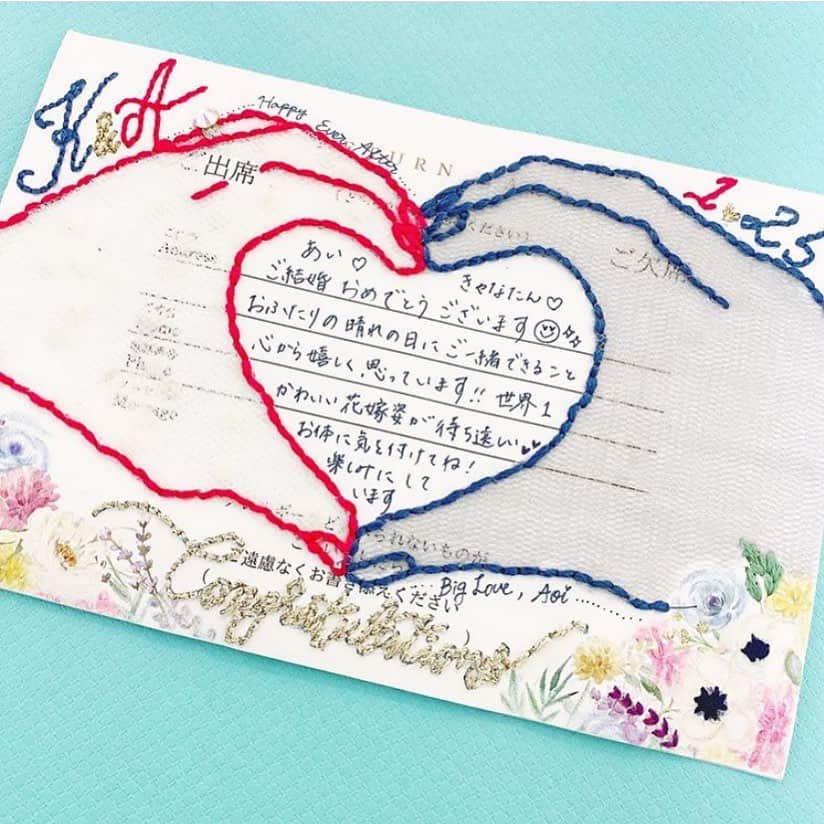 K & A
Happy Ever After
URN
1 & 25
ご出席
ください)
ご欠席
Address
あい♡
きゃなたん♡
ご結婚 おめでとう ございます
おふたりの晴れの日にご一緒できること
心から嬉しく思っています!! 世界1
かわいい花嫁姿が待ち遠しい
お体に気を付けてね!
楽しみにして
います
られないものが
遠慮なくお書き添えください
Big Love, Aoi
Congratulations